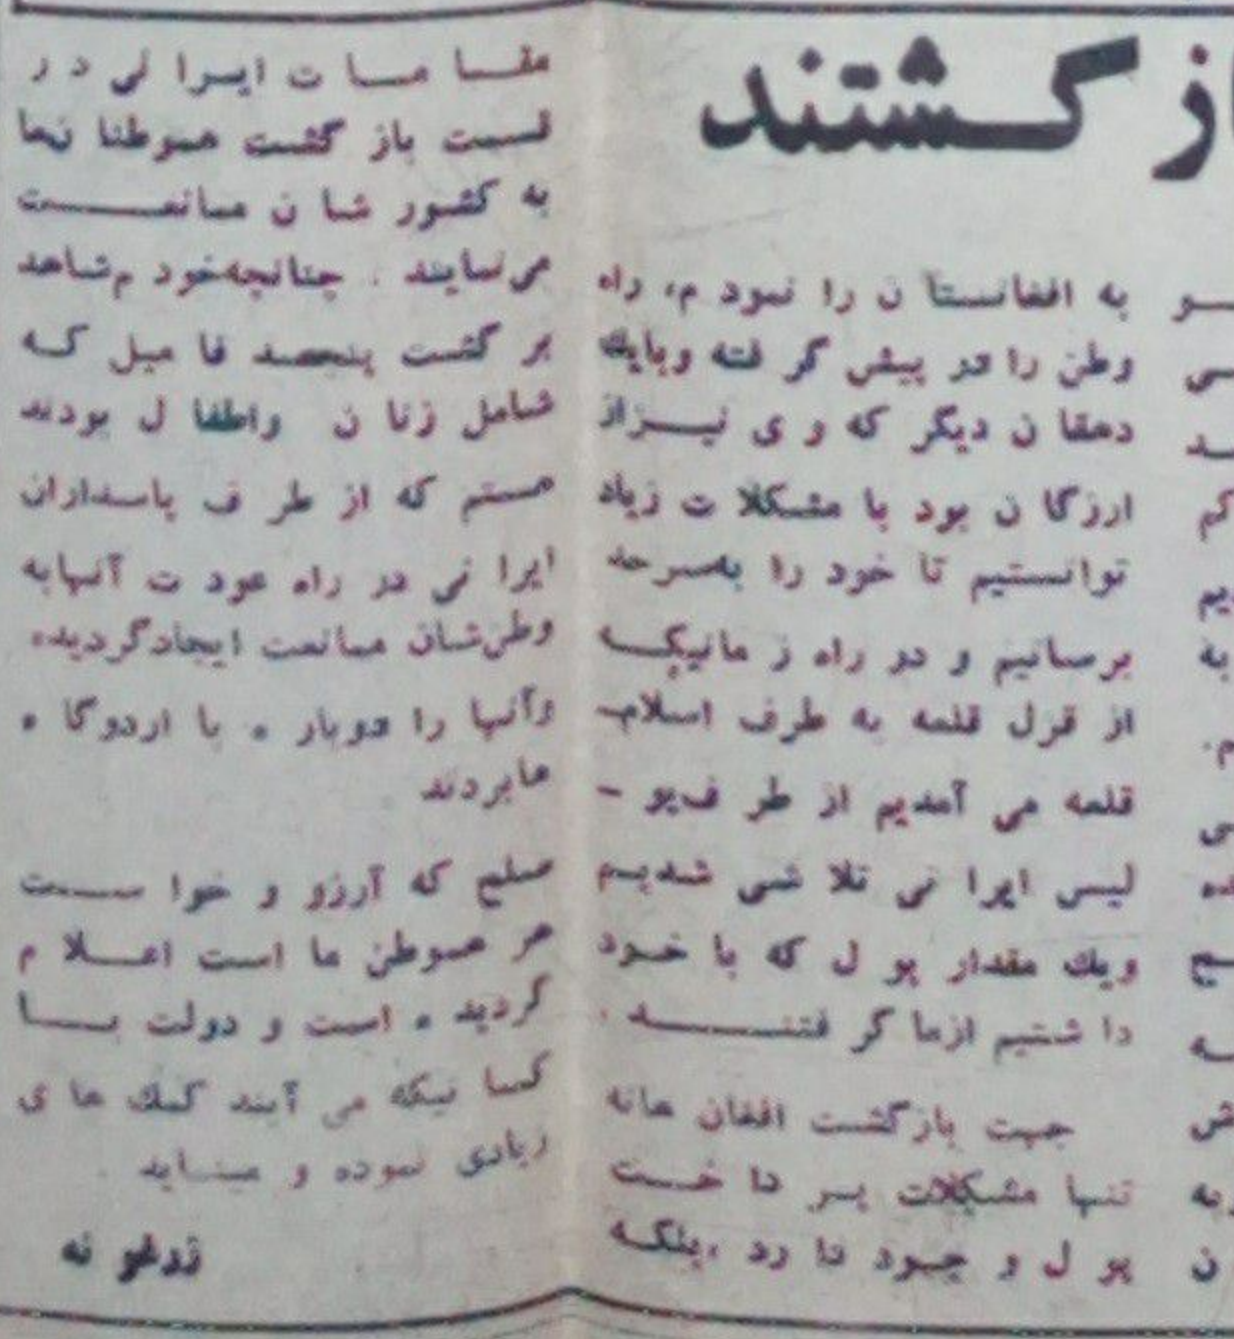 از گشتند
به افغانستا ن را نمود م، راه
وطن را در پیش گر فته وبایك
دهقا ن دیگر که و ی نیــز از
ارزگا ن بود با مشکلا ت زیاد
توانستیم تا خود را به‌سرحد
برسانیم و در راه ز مانیکــه
از قزل قلعه به طرف اسلام
قلعه می آمدیم از طر ف‌پو -
لیس ایرا نی تلا شی شدیــم
ویك مقدار پو ل که با خــود
دا شتیم ازما گر فتنــــد .
جهت بازگشت افغان هانه
تنها مشکلات پــر دا خــت
پو ل و جــود دا رد ،بلکــه
مقــا مــا ت ایــرا نی د ر
قســمت باز گشت هموطنا نما
به کشور شا ن ممانعــــت
می‌نمایند . چنانچه‌خود م‌شاهد
بر گشت پنجصد فا میل کــه
شامل زنا ن واطفا ل بودند
هستم که از طر ف پاسداران
ایرا نی در راه عود ت آنهابه
وطن‌شان ممانعت ایجادگردیده
وآنها را دوبار ه با اردوگا ه
هابردند
صلح که آرزو و خوا ســت
هر هموطن ما است اعــلا م
گردید ه است و دولت بــا
کسا نیکه می آیند کمك ها ی
زیادی نموده و مینــاید
ـو
ـی
ـد
کم
یم
به
م.
ـی
ده
ـح
ـه
ش
ن